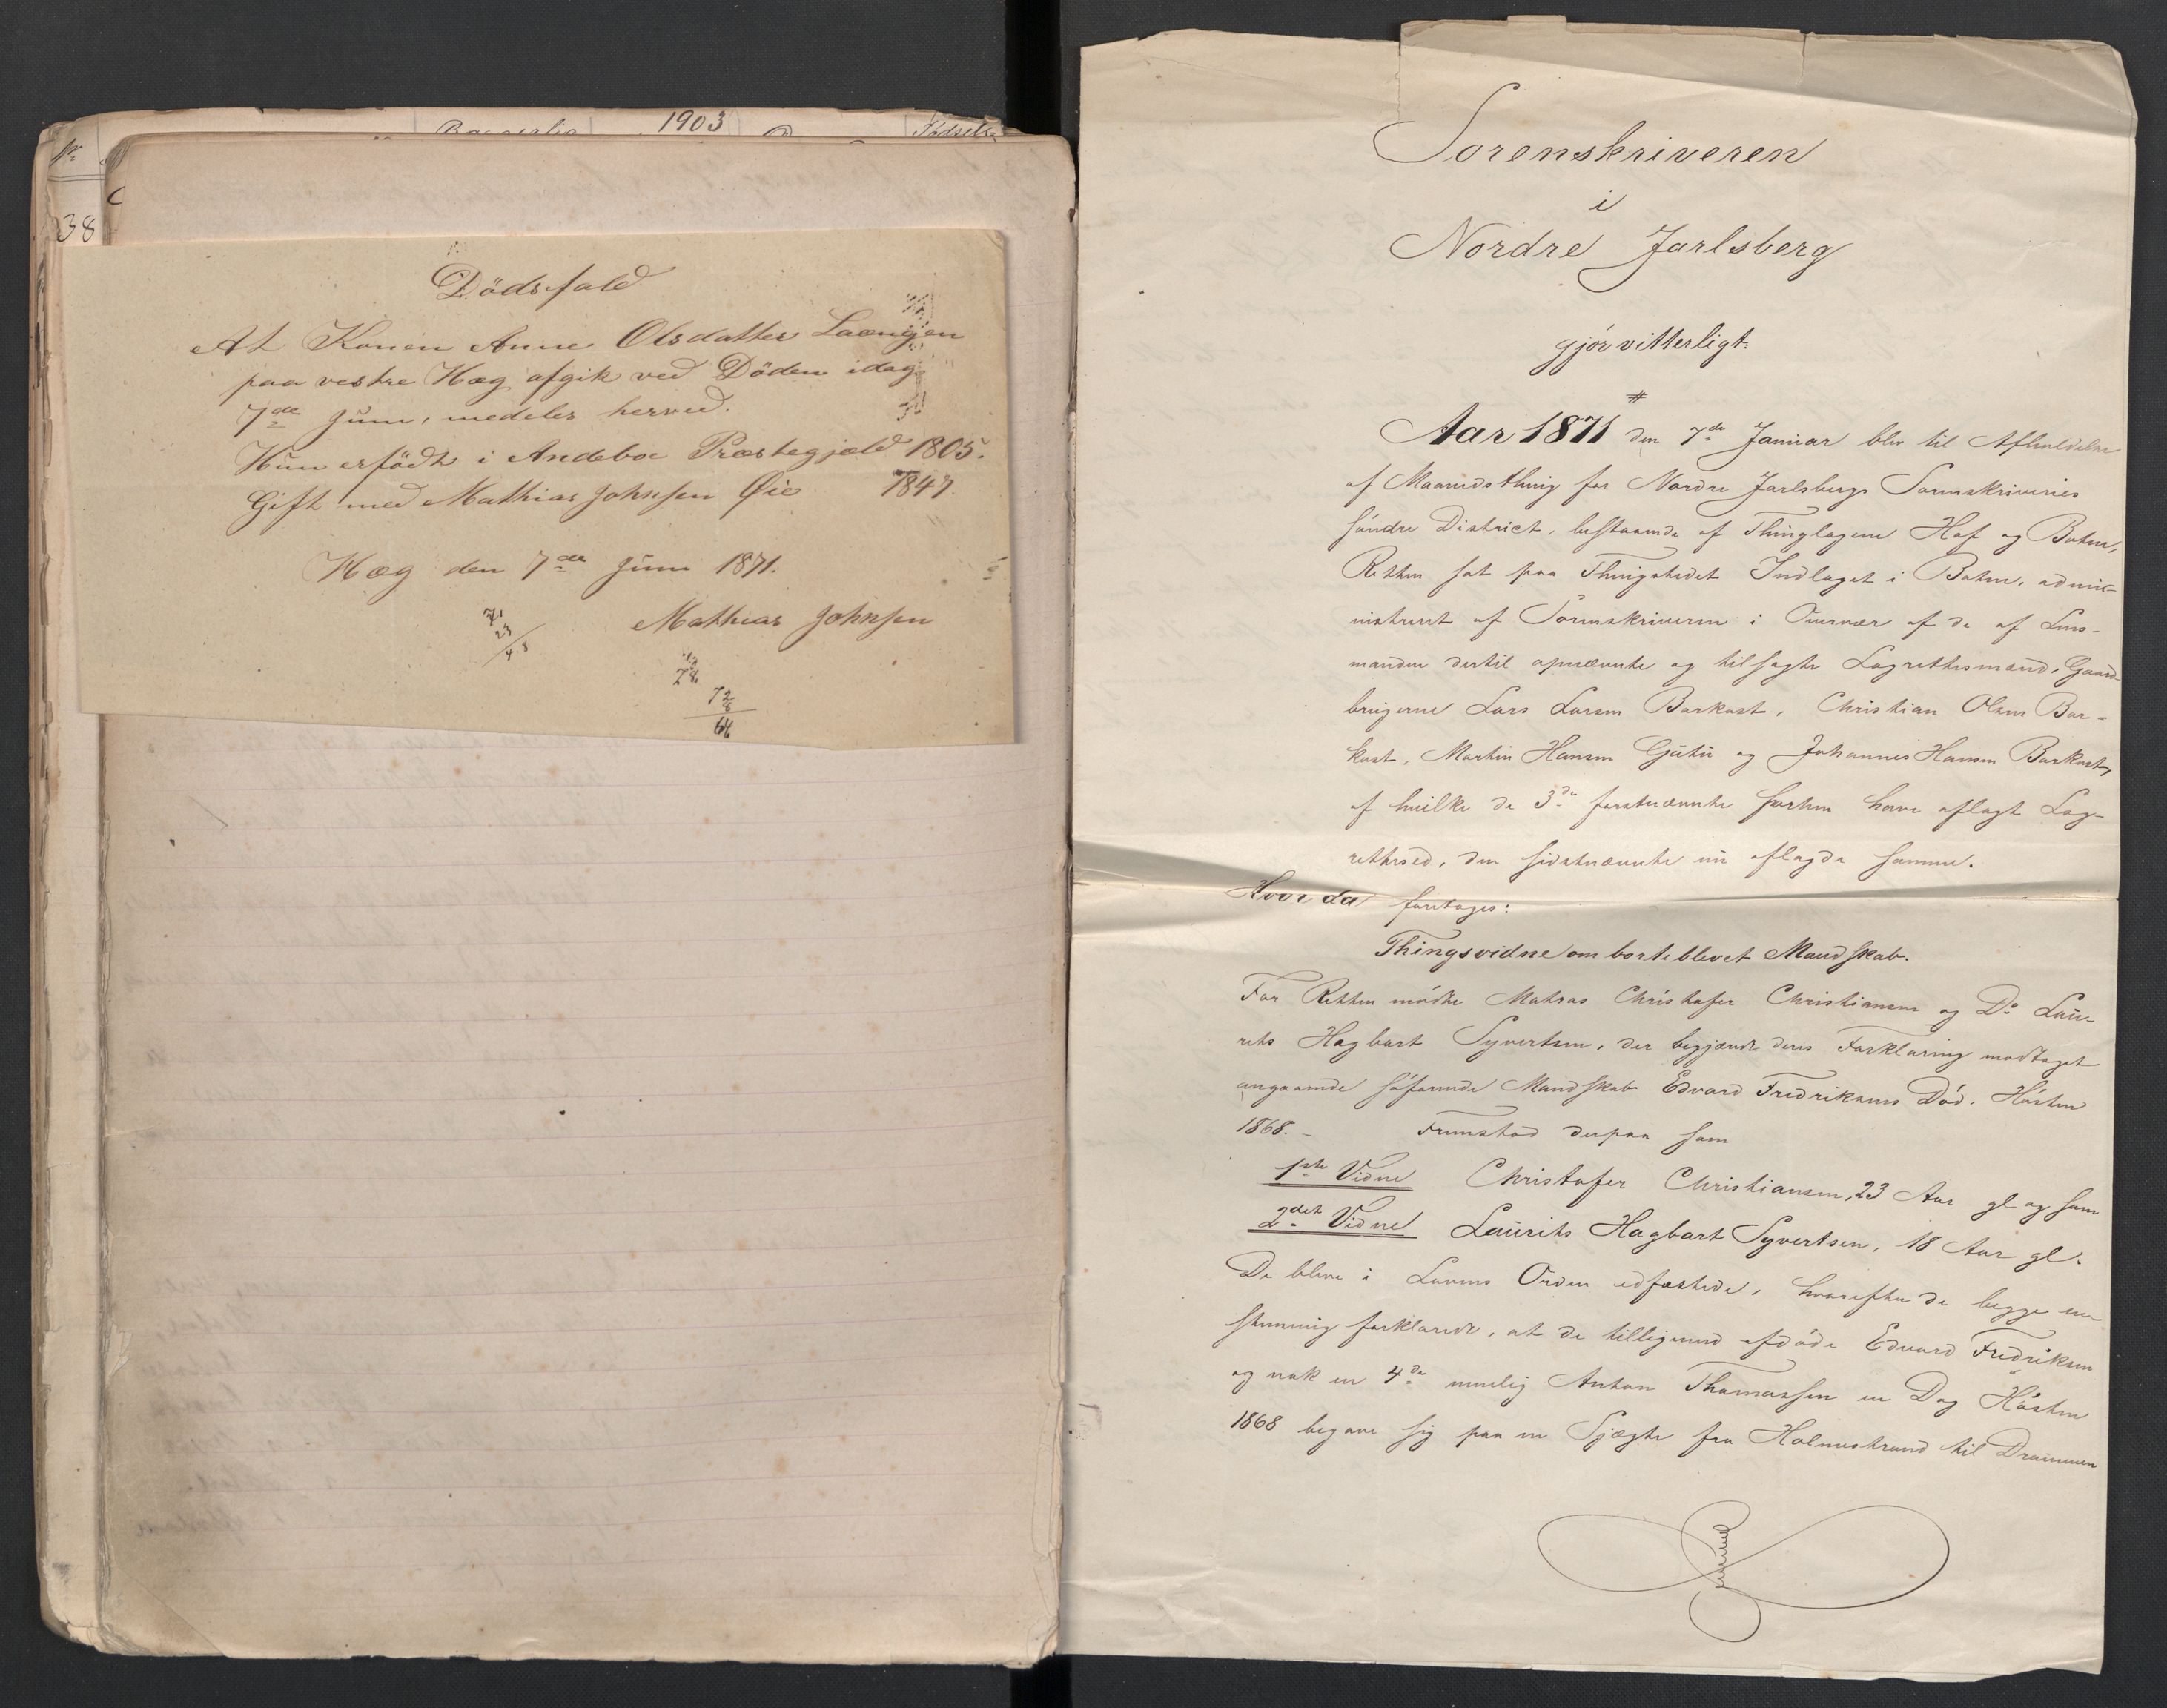 1903
38
Dödsfald
At Konen Anne Olsdatter Laangen
paa vestre Hæg afgik ved Döden idag
7de Juni, meddeles herved.
Hun er födt i Andeboe Præstegjæld 1805.
Gift med Mathias Johnsen Øie 1847.
Hæg den 7de Juni 1871.
Mathias Johnsen
71
23
48
72
6
66
Sorenskriveren
i
Nordre Jarlsberg
gjör vitterligt:
Aar 1871 den 7de Januar blev til Afholdelse
af Maanedsthing for Nordre Jarlsbergs Sorenskriveries
söndre District, bestaaende af Thinglagene Hof og Botne,
Retten sat paa Thingstedet Indlaget i Botne, admi-
nistreret af Sorenskriveren i Overvær af de af Lens-
manden dertil opnævnte og tilsagte Lagrettesmænd, Gaard-
brugerne Lars Larsen Barkost, Christian Olsen Bar-
kost, Martin Hansen og Johannes Hansen Barkost,
af hvilke de 3de förstnævnte forhen have aflagt Lag-
rettesed, den sidstnævnte nu aflagde samme.
Hvor da foretoges:
Thingsvidne om borteblevet Mandskab.
For Retten mödte Matros Christofer Christiansen og Do Lau-
rits Hagbart Syvertsen, der begjærede deres Forklaring modtaget
angaaende söfarende Mandskab Edvard Fredriksens Död. Hösten
1868. – Fremstod derpaa som
1ste Vidne Christofer Christiansen, 23 Aar gl og som
2det Vidne Laurits Hagbart Syvertsen, 18 Aar gl.
De bleve i Lovens Orden edfæstede, hvorefter de begge en-
stemmig forklarede, at de tilligemed afdöde Edvard Fredriksen
og nok en 4de nemlig Anton Thomassen en Dag Hösten
1868 begave sig paa en Sjægte fra Holmestrand til Drammen